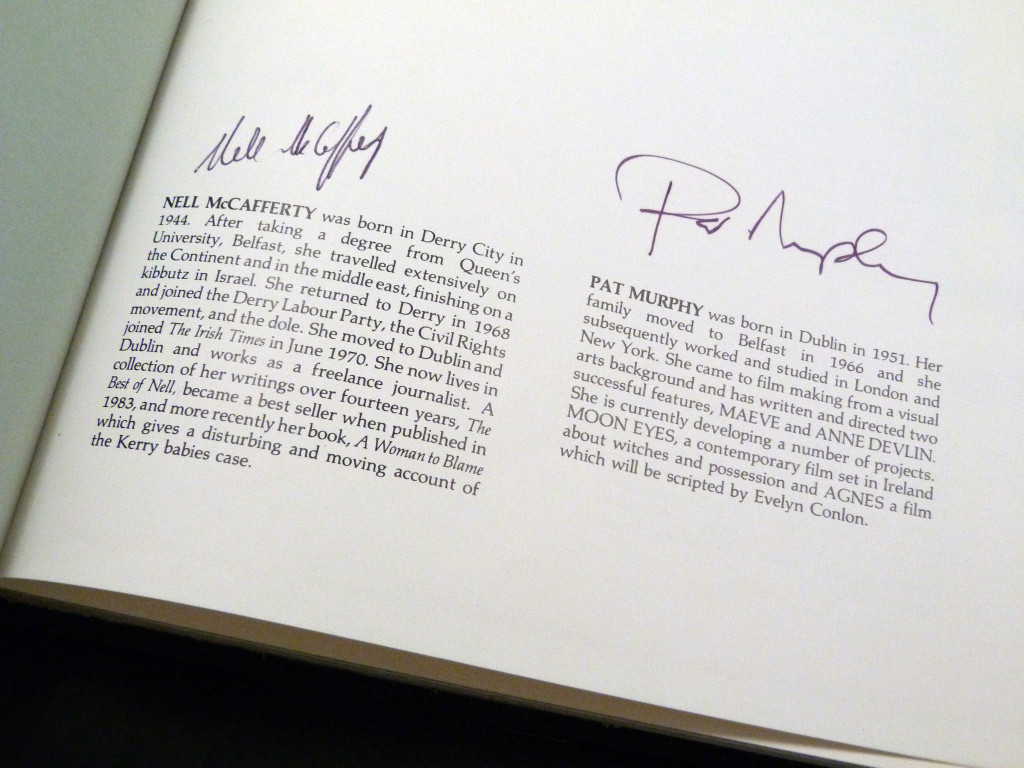 Nell McCafferty
NELL McCAFFERTY was born in Derry City in
1944. After taking a degree from Queen's
University, Belfast, she travelled extensively on
the Continent and in the middle east, finishing on a
kibbutz in Israel. She returned to Derry in 1968
and joined the Derry Labour Party, the Civil Rights
movement, and the dole. She moved to Dublin and
joined The Irish Times in June 1970. She now lives in
Dublin and works as a freelance journalist. A
collection of her writings over fourteen years, The
Best of Nell, became a best seller when published in
1983, and more recently her book, A Woman to Blame
which gives a disturbing and moving account of
the Kerry babies case.
Pat Murphy
PAT MURPHY was born in Dublin in 1951. Her
family moved to Belfast in 1966 and she
subsequently worked and studied in London and
New York. She came to film making from a visual
arts background and has written and directed two
successful features, MAEVE and ANNE DEVLIN.
She is currently developing a number of projects.
MOON EYES, a contemporary film set in Ireland
about witches and possession and AGNES a film
which will be scripted by Evelyn Conlon.